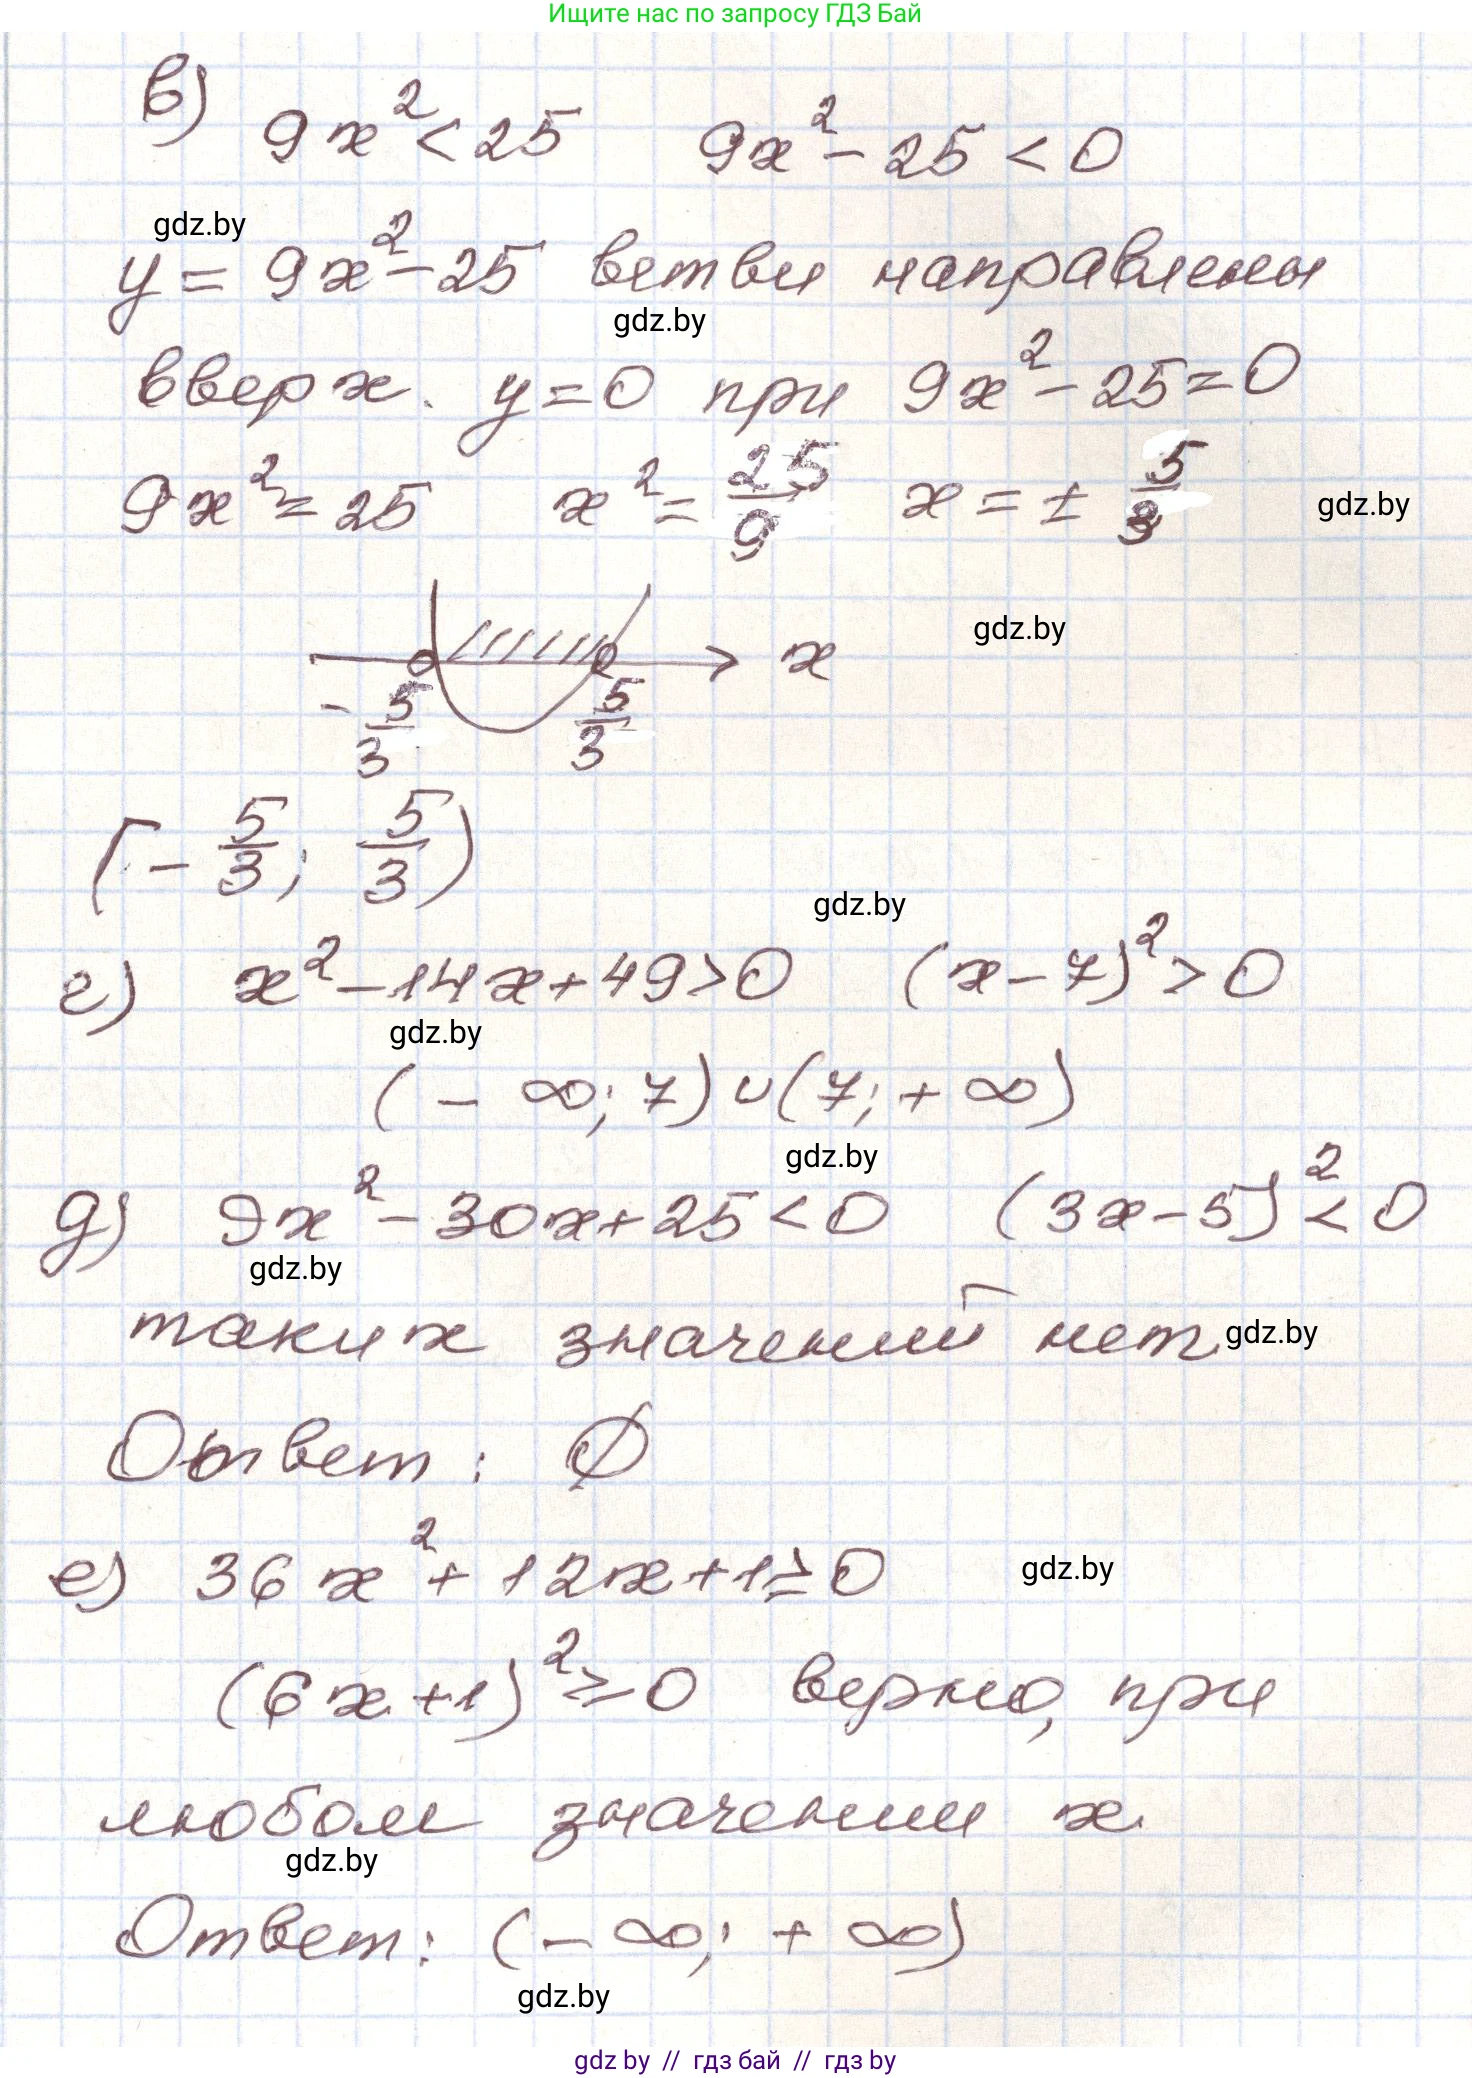 Ищите нас по запросу ГДЗ Бай
в) 9x² < 25 9x² - 25 < 0
gdz.by
y = 9x² - 25 ветви направлены
gdz.by
вверх. y = 0 при 9x² - 25 = 0
9x² = 25 x² = 25/9 x = ± 5/3 gdz.by
gdz.by
x
- 5/3 5/3
(- 5/3; 5/3)
gdz.by
г) x² - 14x + 49 > 0 (x - 7)² > 0
gdz.by
(- ∞; 7) ∪ (7; + ∞)
gdz.by
д) 9x² - 30x + 25 < 0 (3x - 5)² < 0
gdz.by
таких значений нет gdz.by
Ответ: ∅
е) 36x² + 12x + 1 ≥ 0 gdz.by
(6x + 1)² ≥ 0 верно, при
любом значении x.
gdz.by
Ответ: (- ∞; + ∞)
gdz.by
gdz by // гдз бай // гдз by